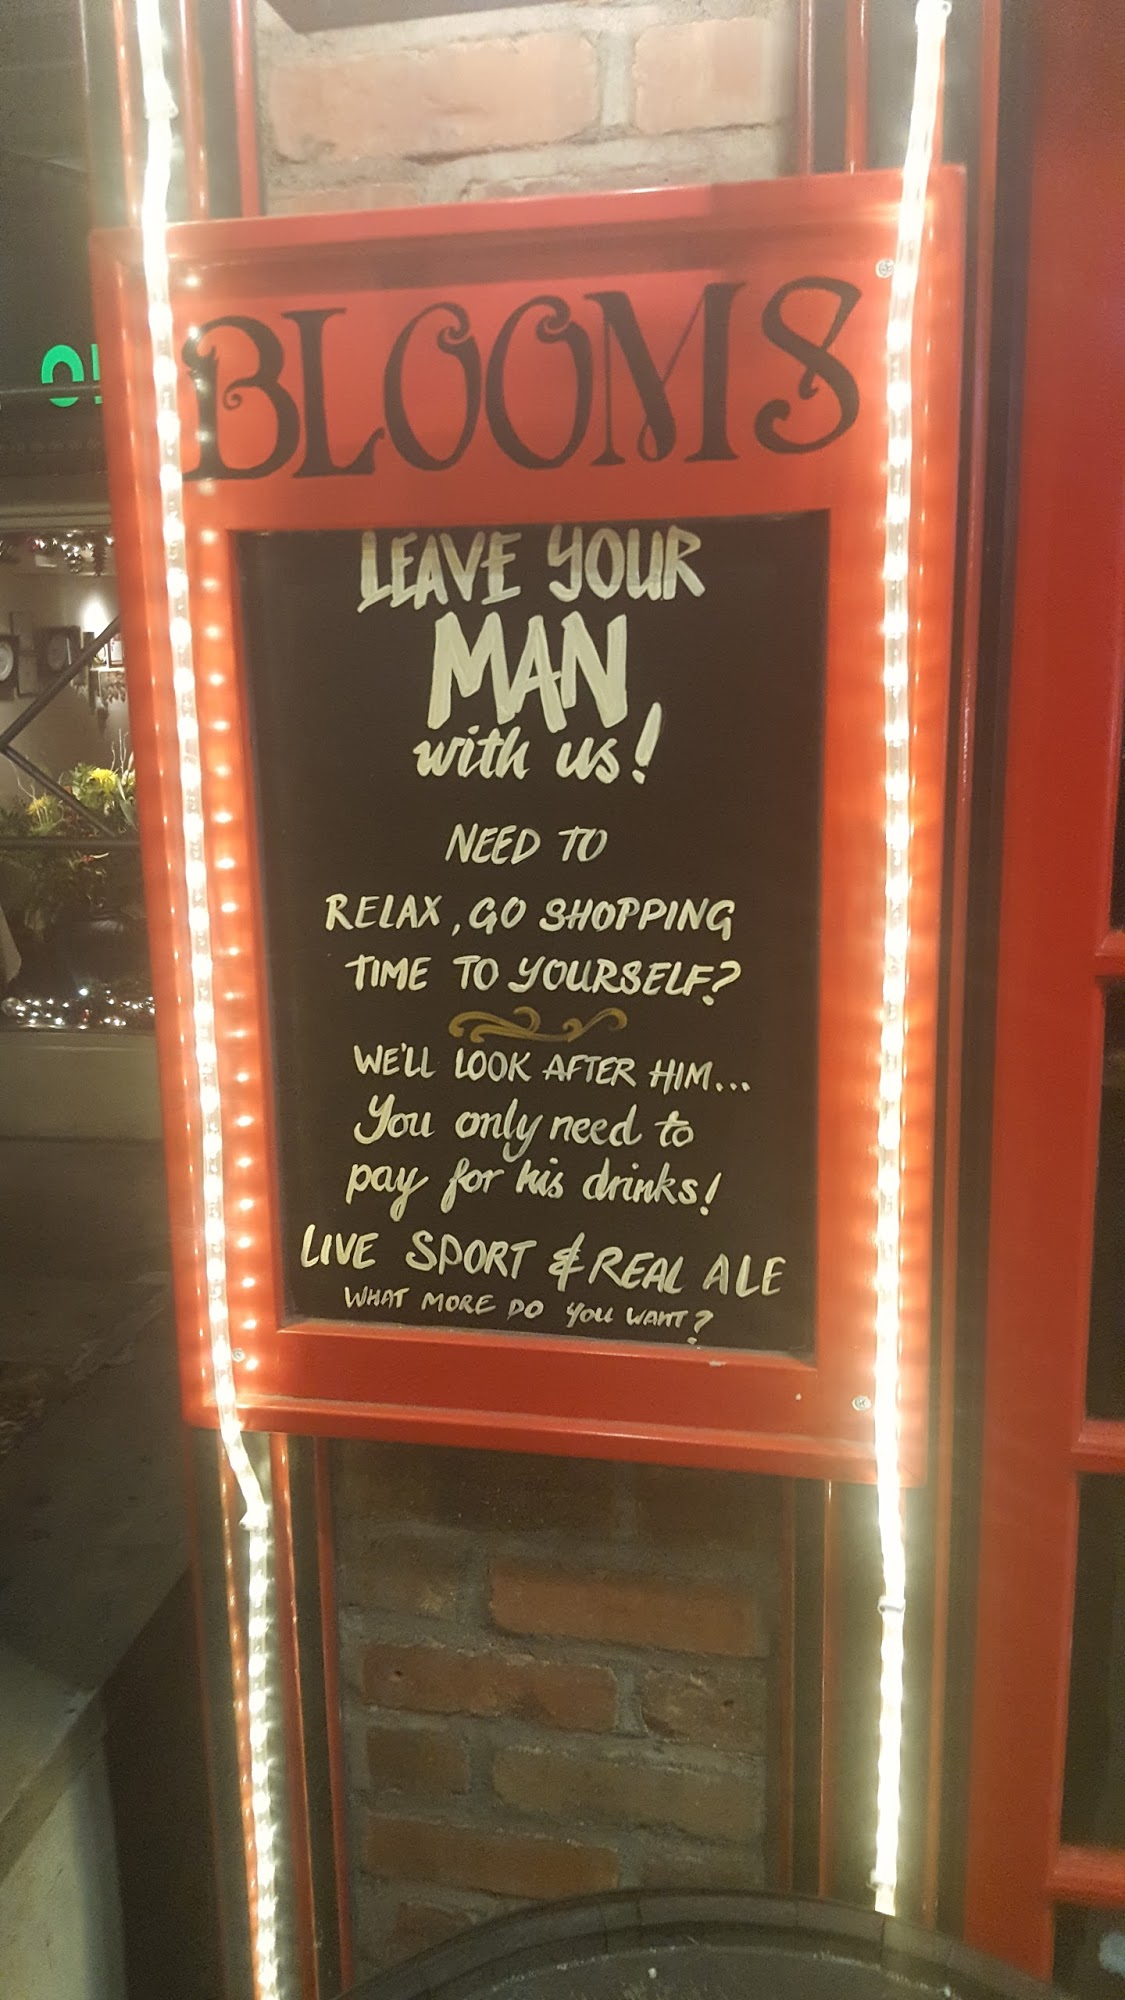 BLOOMS
LEAVE YOUR
MAN
with us!
NEED TO
RELAX, GO SHOPPING
TIME TO YOURSELF?
WE'LL LOOK AFTER HIM...
You only need to
pay for his drinks!
LIVE SPORT & REAL ALE
WHAT MORE DO YOU WANT?